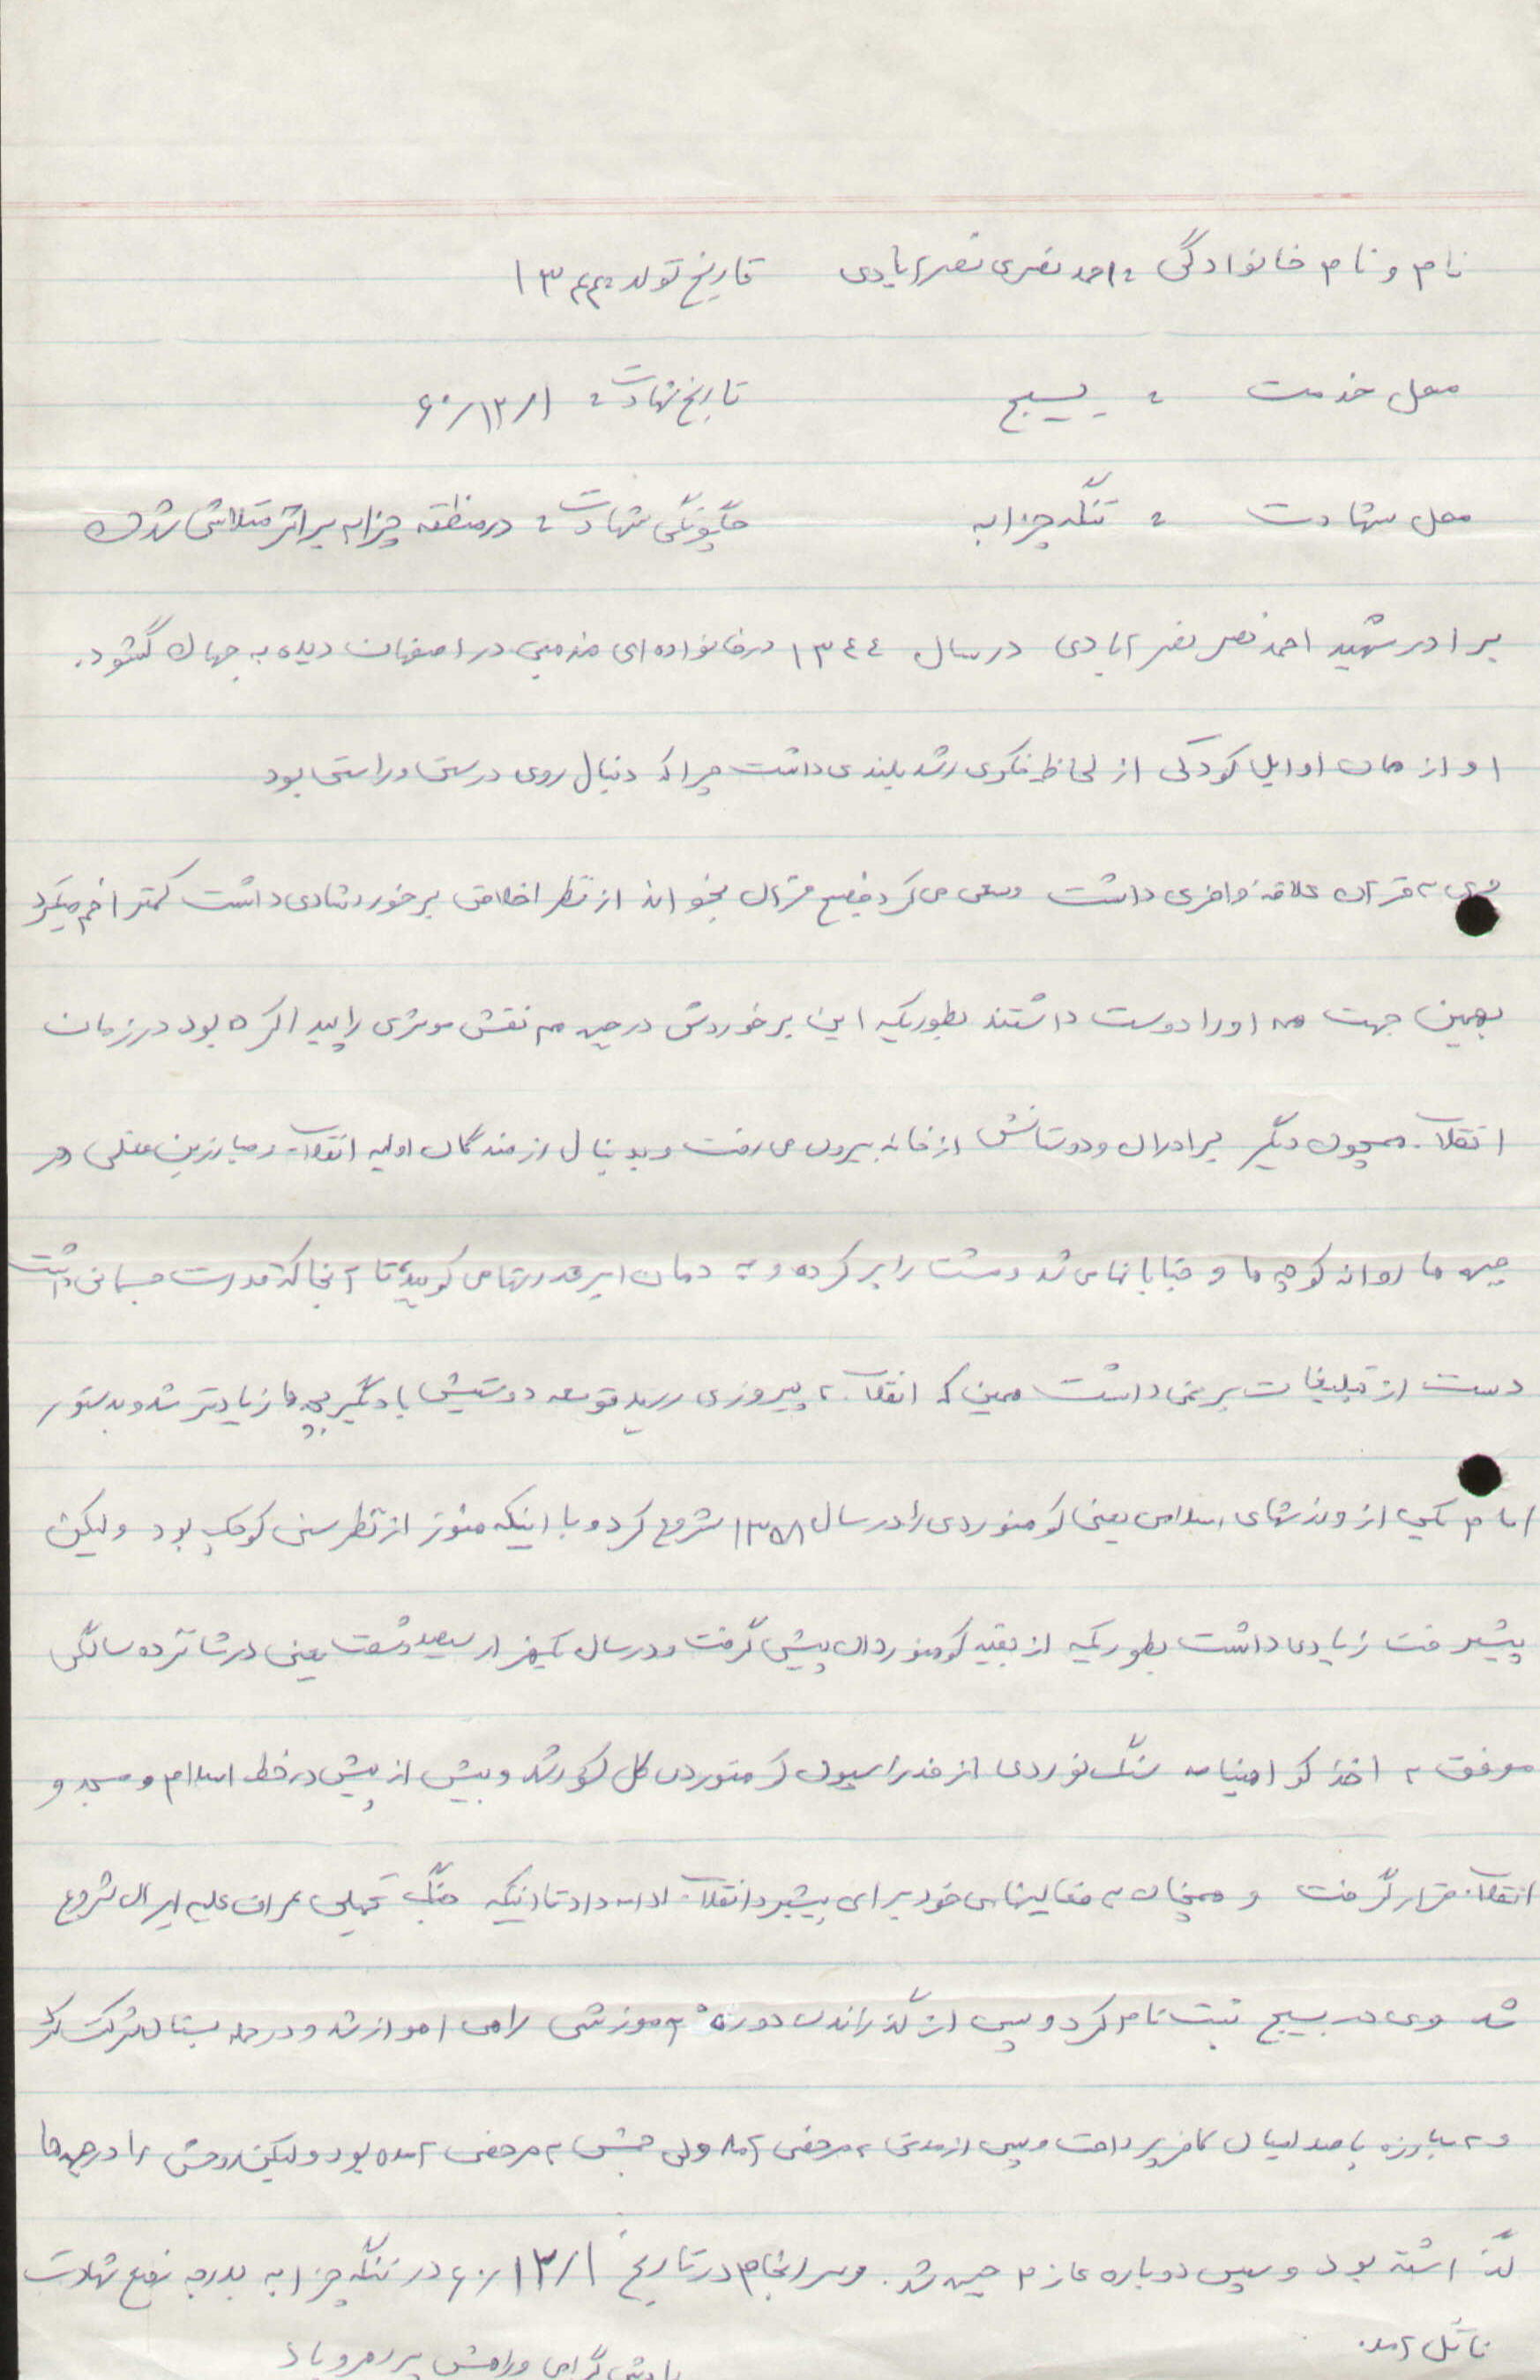 نام و نام خانوادگی : احمد نصری نصرآبادی تاریخ تولد : ۱۳۴۴
محل خدمت : بسیج تاریخ شهادت : ۶۰/۱۲/۱
محل شهادت : تنگه چزابه چگونگی شهادت : در منطقه چزابه بر اثر متلاشی شدن
برادر شهید احمد نصر نصرآبادی در سال ۱۳٤٤ در خانواده‌ای مذهبی در اصفهان دیده به جهان گشود.
او از همان اوایل کودکی از لحاظ فکری رشد بلندی داشت چرا که دنبال روی درستی و راستی بود
وی به قرآن علاقه وافری داشت و سعی می کرد فصیح قرآن بخواند از نظر اخلاقی برخورد شادی داشت کمتر اخم میکرد
بهمین جهت همه او را دوست داشتند بطوریکه این برخوردش در جبهه هم نقش موثری را پیدا کرده بود در زمان
انقلاب همچون دیگر برادران و دوستانش از خانه بیرون می رفت و بدنبال رزمندگان اولیه انقلاب و مبارزین عقلی در
جبهه ها روانه کوچه ها و خیابانها می شد و مشت را پر کرده و به دهان ابرقدرتها می کوبید تا آنجا که قدرت جسمانی داشت
دست از تبلیغات بر نمی داشت همین که انقلاب به پیروزی رسید توسعه دوستیش با دیگر بچه ها زیادتر شد و بدستور
امام یکی از ورزشهای اسلامی یعنی کوهنوردی را در سال ۱۳۵۸ شروع کرد و با اینکه هنوز از نظر سنی کوچک بود ولیکن
پیشرفت زیادی داشت بطوریکه از بقیه کوهنوردان پیشی گرفت و در سال یکهزار و سیصد و شصت یعنی در شانزده سالگی
موفق به اخذ گواهینامه سنگ نوردی از فدراسیون کوهنوردی کل کشور شد و بیش از پیش در خط اسلام و مسجد و
انقلاب قرار گرفت و همچنان به فعالیتهای خود برای پیشبرد انقلاب ادامه داد تا اینکه جنگ تحمیلی عراق علیه ایران شروع
شد وی در بسیج ثبت نام کرد و پس از گذراندن دوره آموزشی راهی اهواز شد و در حمله بستان شرکت کرد
و به مبارزه با صدامیان کافر پرداخت و پس از مدتی به مرخصی آمد ولی جسمش به مرخصی آمده بود ولیکن روحش را در جبهه ها
گذاشته بود و سپس دوباره عازم جبهه شد. و سرانجام در تاریخ ۶۰/۱۲/۱ در تنگه چزابه بدرجه رفیع شهادت
نائل آمد.
یادش گرامی و راهش پر رهرو باد